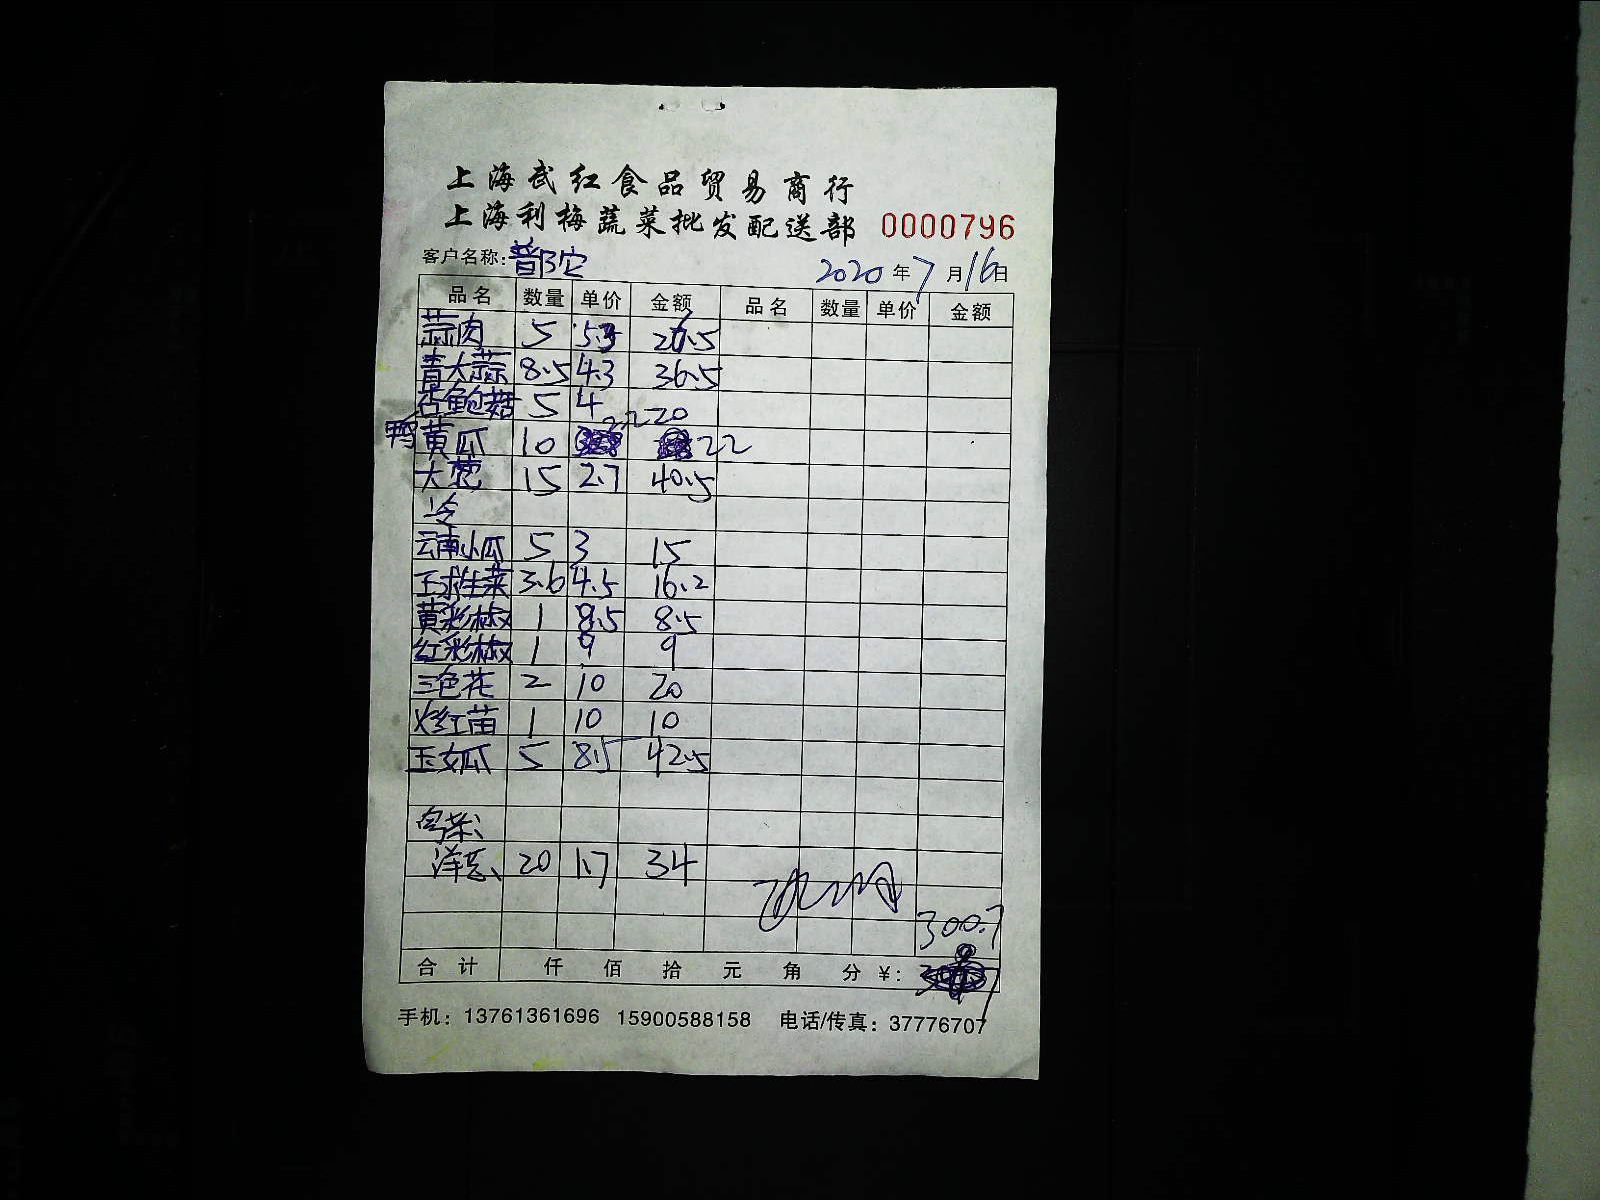 上海武红食品贸易商行
上海利梅蔬菜批发配送部 0000796
客户名称：普陀 2020年7月16日
品名 数量 单价 金额 品名 数量 单价 金额
蒜肉 5 5.3 26.5
青大蒜 8.5 4.3 36.5
鲍菇 5 4 20
黄瓜 10 2.2 22
大葱 15 2.7 40.5
冷
云南小瓜 5 3 15
玉求生菜 3.6 4.5 16.2
黄彩椒 1 8.5 8.5
红彩椒 1 9 9
三色花 2 10 20
红苗 1 10 10
玉女瓜 5 8.5 42.5
洋葱 20 1.7 34
300.7
合计 仟 佰 拾 元 角 分 ¥:
手机：13761361696 15900588158 电话/传真：37776707